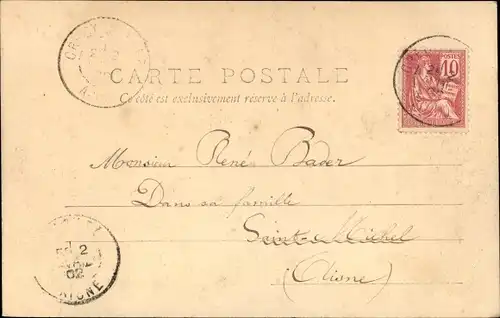 CARTE POSTALE
Ce côté est exclusivement réservé à l'adresse.
POSTES
10
Monsieur René Bader
Dans sa famille
Saint-Michel
(Aisne)
2
02
AISNE